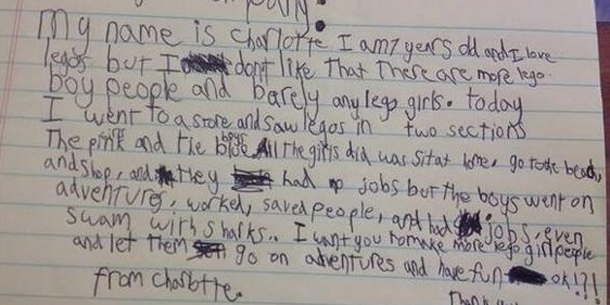 My name is Charlotte I am 7 years old and I love
legos but I dont like that There are more lego
boy people and barely any lego girls. today
I went to a store and saw legos in two sections
The pink and the blue boys All the girls did was sit at home, go to the beach,
and shop, and they had no jobs but the boys went on
adventures, worked, saved people, and had jobs, even
swam with sharks.. I want you to make more lego girl people
and let them go on adventures and have fun ok!?!
from Charlotte.